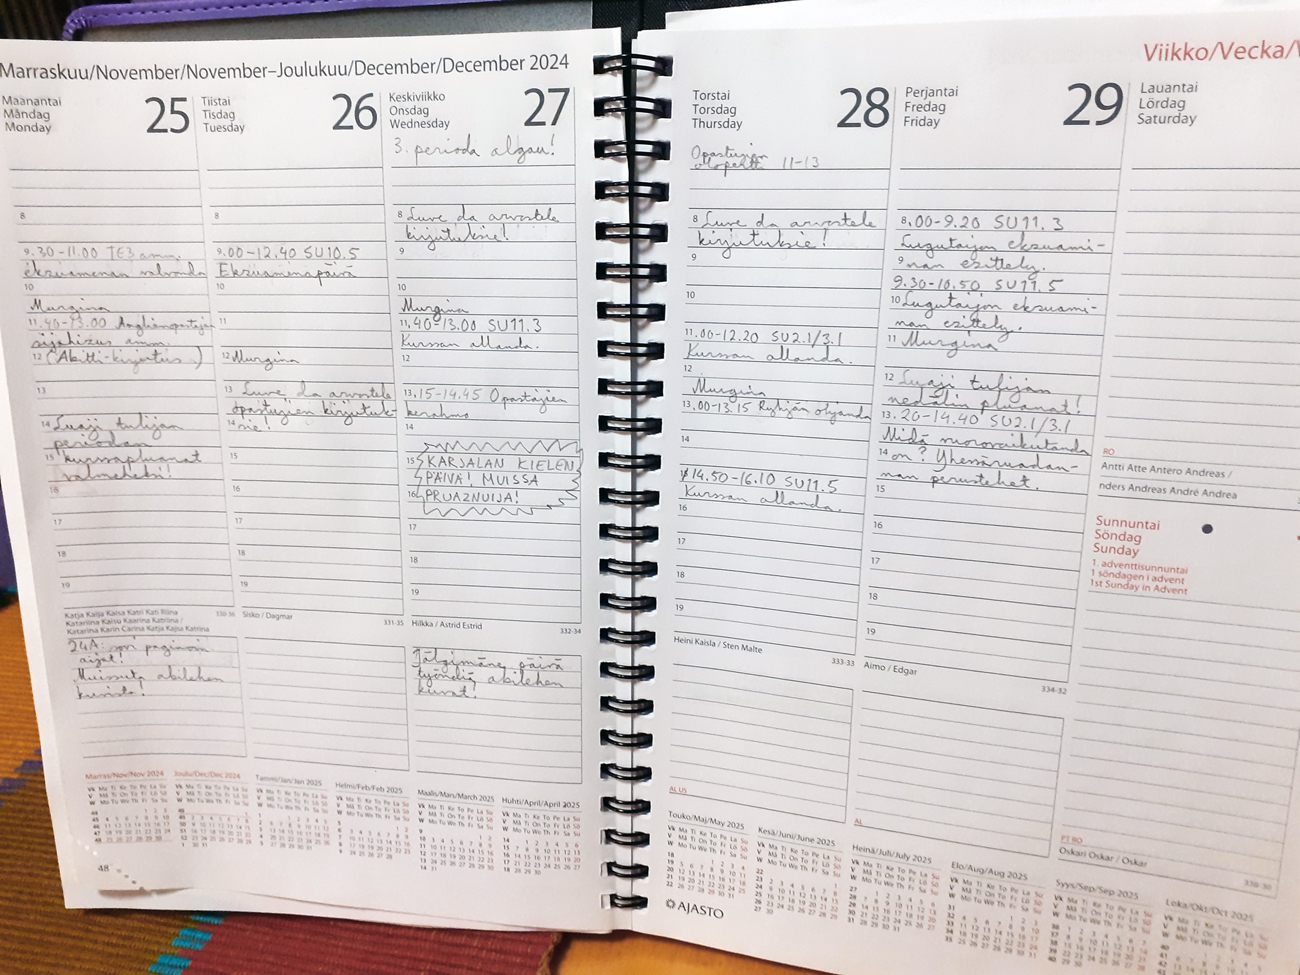 Marraskuu/November/November–Joulukuu/December/December 2024
Maanantai
Måndag
Monday
25
9.30-11.00 TE3 amm.
eksuamenan valvonda
Murgina
11.40-13.00
sijahizus amm.
(Abitti-kirjutus)
Luaji tulijan
periodan
kurssapluanat
valmeheksi!
8
10
12
13
14
15
16
17
18
19
Katja Kaija Kaisa Katri Kati Riina
Katariina Kaisu Kaarina Katriina /
Katarina Karin Carina Katja Kajsa Katrina
330-36
aijat!
Muissuta abilehen
kuvista!
Tiistai
Tisdag
Tuesday
26
8
9.00-12.40 SU10.5
Eksuaminapäivä
10
11
12 Murgina
13 Luve da arvostele
opastujien kirjutuk-
14 sie!
15
16
17
18
19
Sisko / Dagmar
331-35
Keskiviikko
Onsdag
Wednesday
27
3. perioda algau!
8 Luve da arvostele
kirjutuksie!
9
10
Murgina
11.40-13.00 SU11.3
Kurssan allanda.
12
13.15-14.45 Opastajien
kerahmo
14
15 KARJALAN KIELEN
PÄIVÄ! MUISSA
16 PRUAZNUIJA!
17
18
19
Hilkka / Astrid Estrid
332-34
Jälgimäne päivä
työndiä abilehen
kuvat!
Marras/Nov/Nov 2024
Joulu/Dec/Dec 2024
Tammi/Jan/Jan 2025
Helmi/Feb/Feb 2025
Maalis/Mars/March 2025
Huhti/April/April 2025
48
Viikko/Vecka/
Torstai
Torsdag
Thursday
28
Opastujan
11-13
8 Luve da arvostele
kirjutuksie!
9
10
11.00-12.20 SU2.1/3.1
Kurssan allanda.
12
Murgina
13.00-13.15 Ryhjän ohjanda
14
14.50-16.10 SU11.5
Kurssan allanda.
16
17
18
19
Heini Kaisla / Sten Malte
333-33
AL US
Perjantai
Fredag
Friday
29
8.00-9.20 SU11.3
Lugutaijon eksuami-
9 nan ezittely.
9.30-10.50 SU11.5
10 Lugutaijon eksuami-
nan ezittely.
11 Murgina
12 Luaji tulijan
nedälin pluanat!
13.20-14.40 SU2.1/3.1
Midä vuorovaikutanda
14 on? Yhessäruadan-
nan perustehet.
15
16
17
18
19
Aimo / Edgar
334-32
AL
Lauantai
Lördag
Saturday
RO
Antti Atte Antero Andreas /
nders Andreas André Andrea
Sunnuntai
Söndag
Sunday
1. adventtisunnuntai
1 söndagen i advent
1st Sunday in Advent
PT RO
Oskari Oskar / Oskar
Touko/Maj/May 2025
Kesä/Juni/June 2025
Heinä/Juli/July 2025
Elo/Aug/Aug 2025
Syys/Sep/Sep 2025
Loka/Okt/Oct 2025
AJASTO